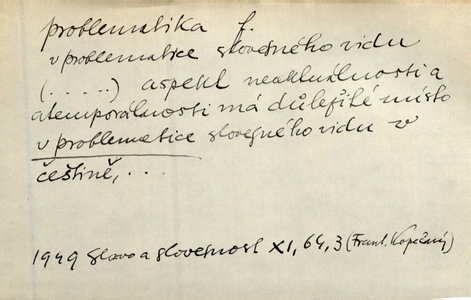 problematika f.
v problematice slovesného vidu
(.....) aspekt neaktuálnosti a
atemporálnosti má důležité místo
v problematice slovesného vidu v
češtině,...
1949 Slovo a slovesnost XI, 64, 3 (Frant. Kopečný)